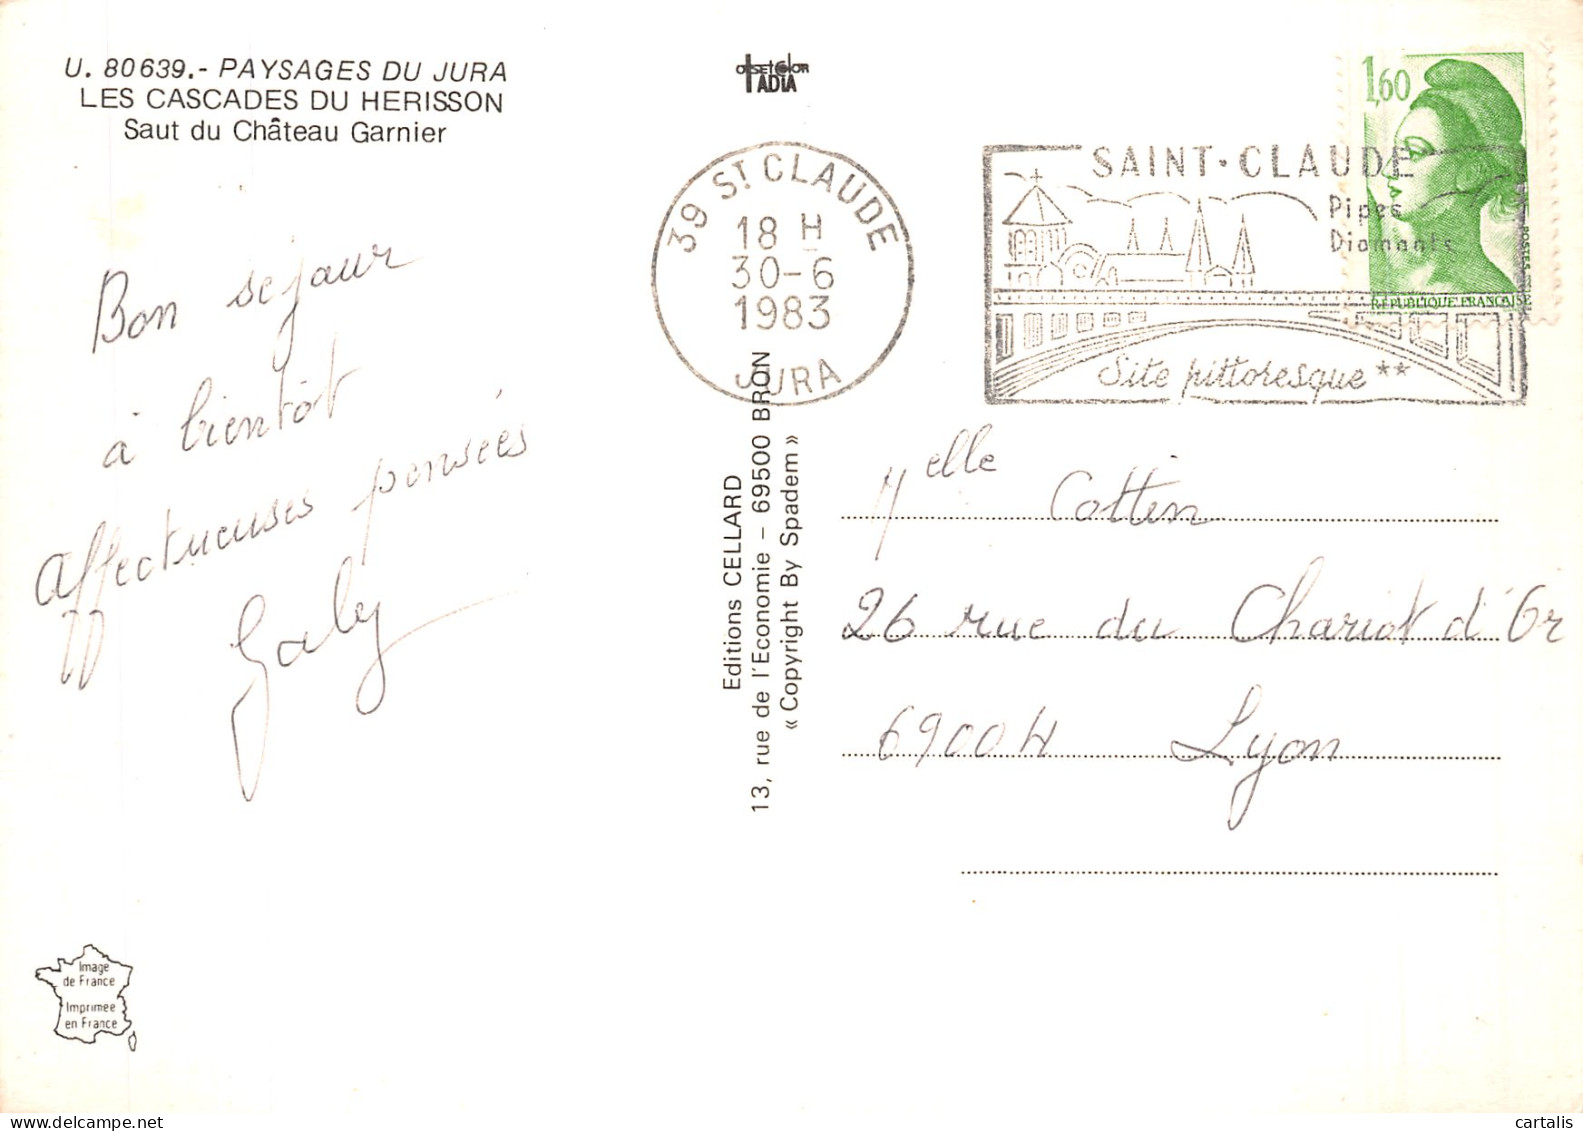 U. 80639.- PAYSAGES DU JURA
LES CASCADES DU HERISSON
Saut du Château Garnier
OFFSETCOLOR
IADIA
39 ST CLAUDE
18 H
30-6
1983
JURA
SAINT·CLAUDE
Pipes
Diamants
Site pittoresque **
1,60
POSTES
REPUBLIQUE FRANCAISE
Bon séjour
à bientôt
Affectueuses pensées
Gaby
Editions CELLARD
13, rue de l'Economie - 69500 BRON
« Copyright By Spadem »
Melle Cottin
26 rue du Chariot d'Or
69004 Lyon
Image
de France
Imprimée
en France
cartalis